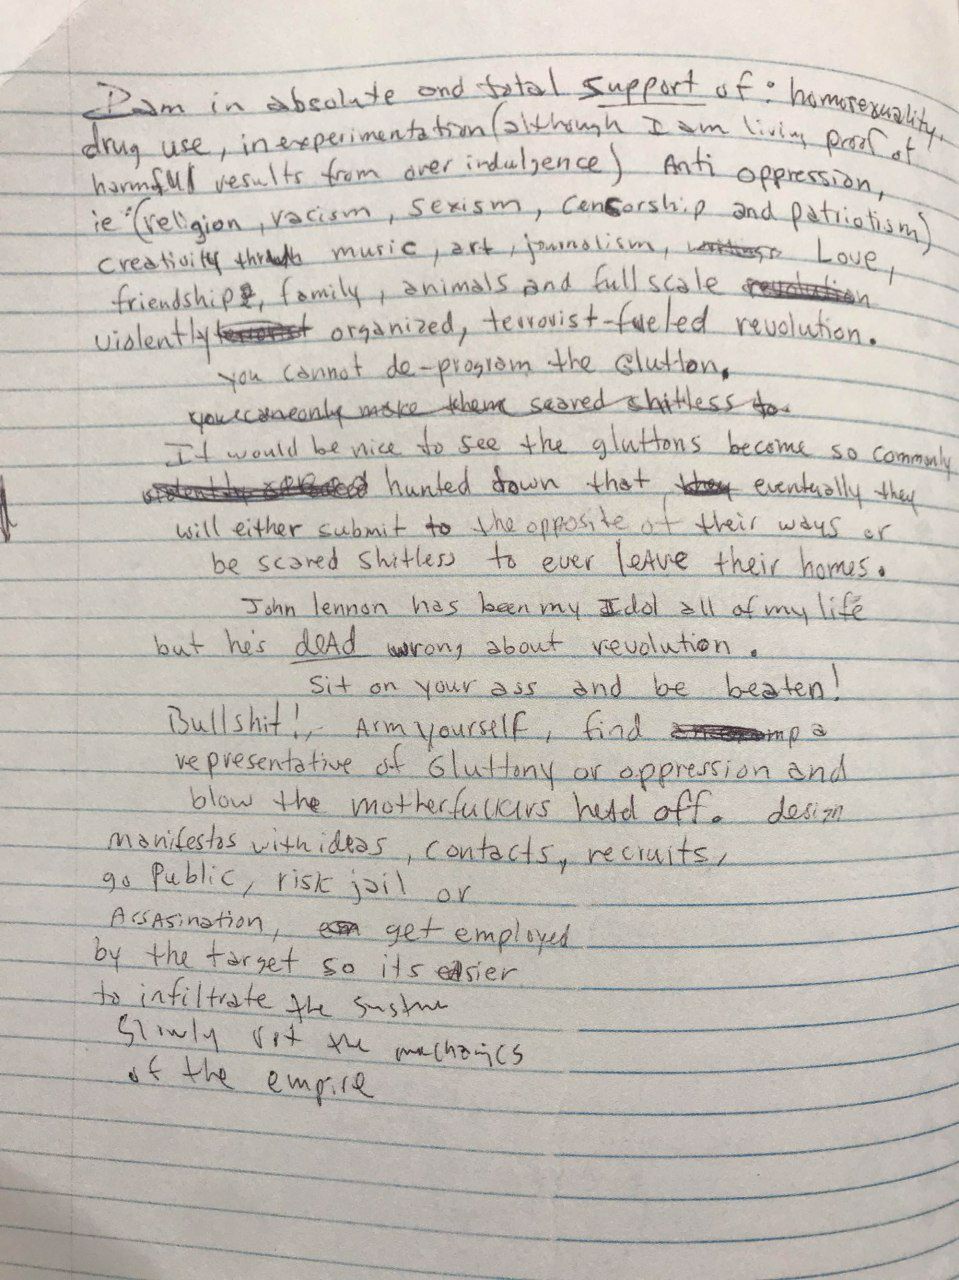 I am in absolute and total support of: homosexuality,
drug use, in experimentation (although I am living proof of
harmful results from over indulgence) Anti oppression,
ie (religion, racism, sexism, censorship and patriotism)
creativity through music, art, journalism, Love,
friendship, family, animals and full scale revolution
violently terrorist organized, terrorist-fueled revolution.
you cannot de-program the Glutton.
you can only make them scared shitless to
It would be nice to see the gluttons become so commonly
hunted down that they eventually they
will either submit to the opposite of their ways or
be scared shitless to ever leAve their homes.
John lennon has been my Idol all of my life
but he's deAd wrong about revolution.
Sit on your ass and be beaten!
Bullshit!, Arm yourself, find a
representative of Gluttony or oppression and
blow the motherfuckers heAd off. design
manifestos with ideas, contacts, recruits,
go public, risk jail or
AssAsination, get employed
by the target so its eAsier
to infiltrate the
Slowly rot the mechanics
of the empire